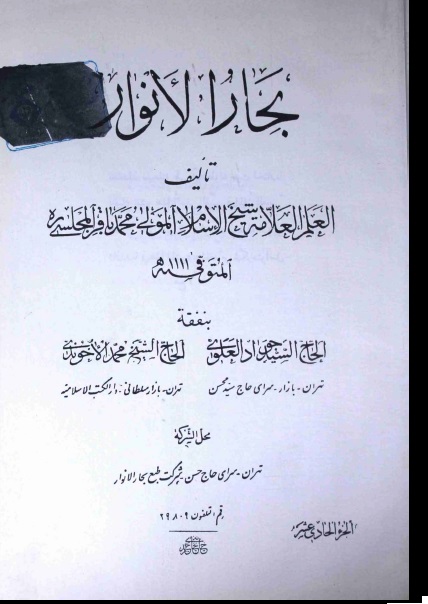 بحار الأنوار
تأليف
العلم العلامة شيخ الإسلام المولى محمد باقر المجلسي ره
المتوفى سنة ١١١١ ه
بنفقة
الحاج السيد جواد العلوي الحاج الشيخ محمد الآخوندي
تهران - بازار - سراى حاج سيد محسن تهران - بازار سلطانى - دار الكتب الاسلامية
محل الشركة
تهران - سراى حاج حسن - شركت طبع بحار الانوار
رقم تلفون ٢٩٨٠٩
الجزء الحادي عشر